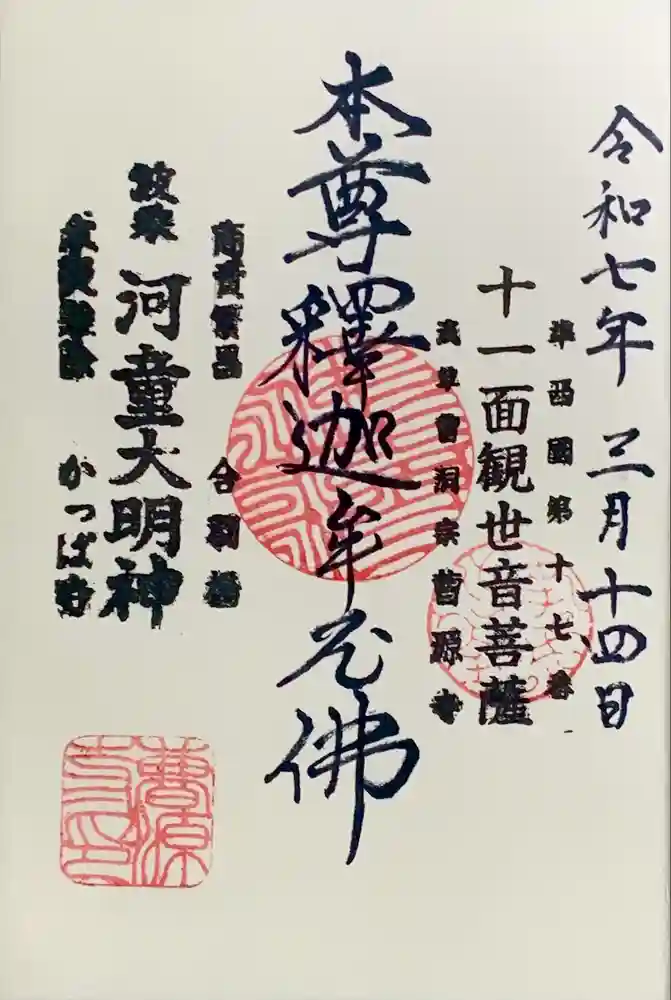 令和七年 三月十四日
準西國第十七番
十一面観世音菩薩
浅草曹洞宗曹源寺
本尊釋迦牟尼佛
商賣繁昌 合羽橋
波乗 河童大明神
かっぱ寺
曹源寺印